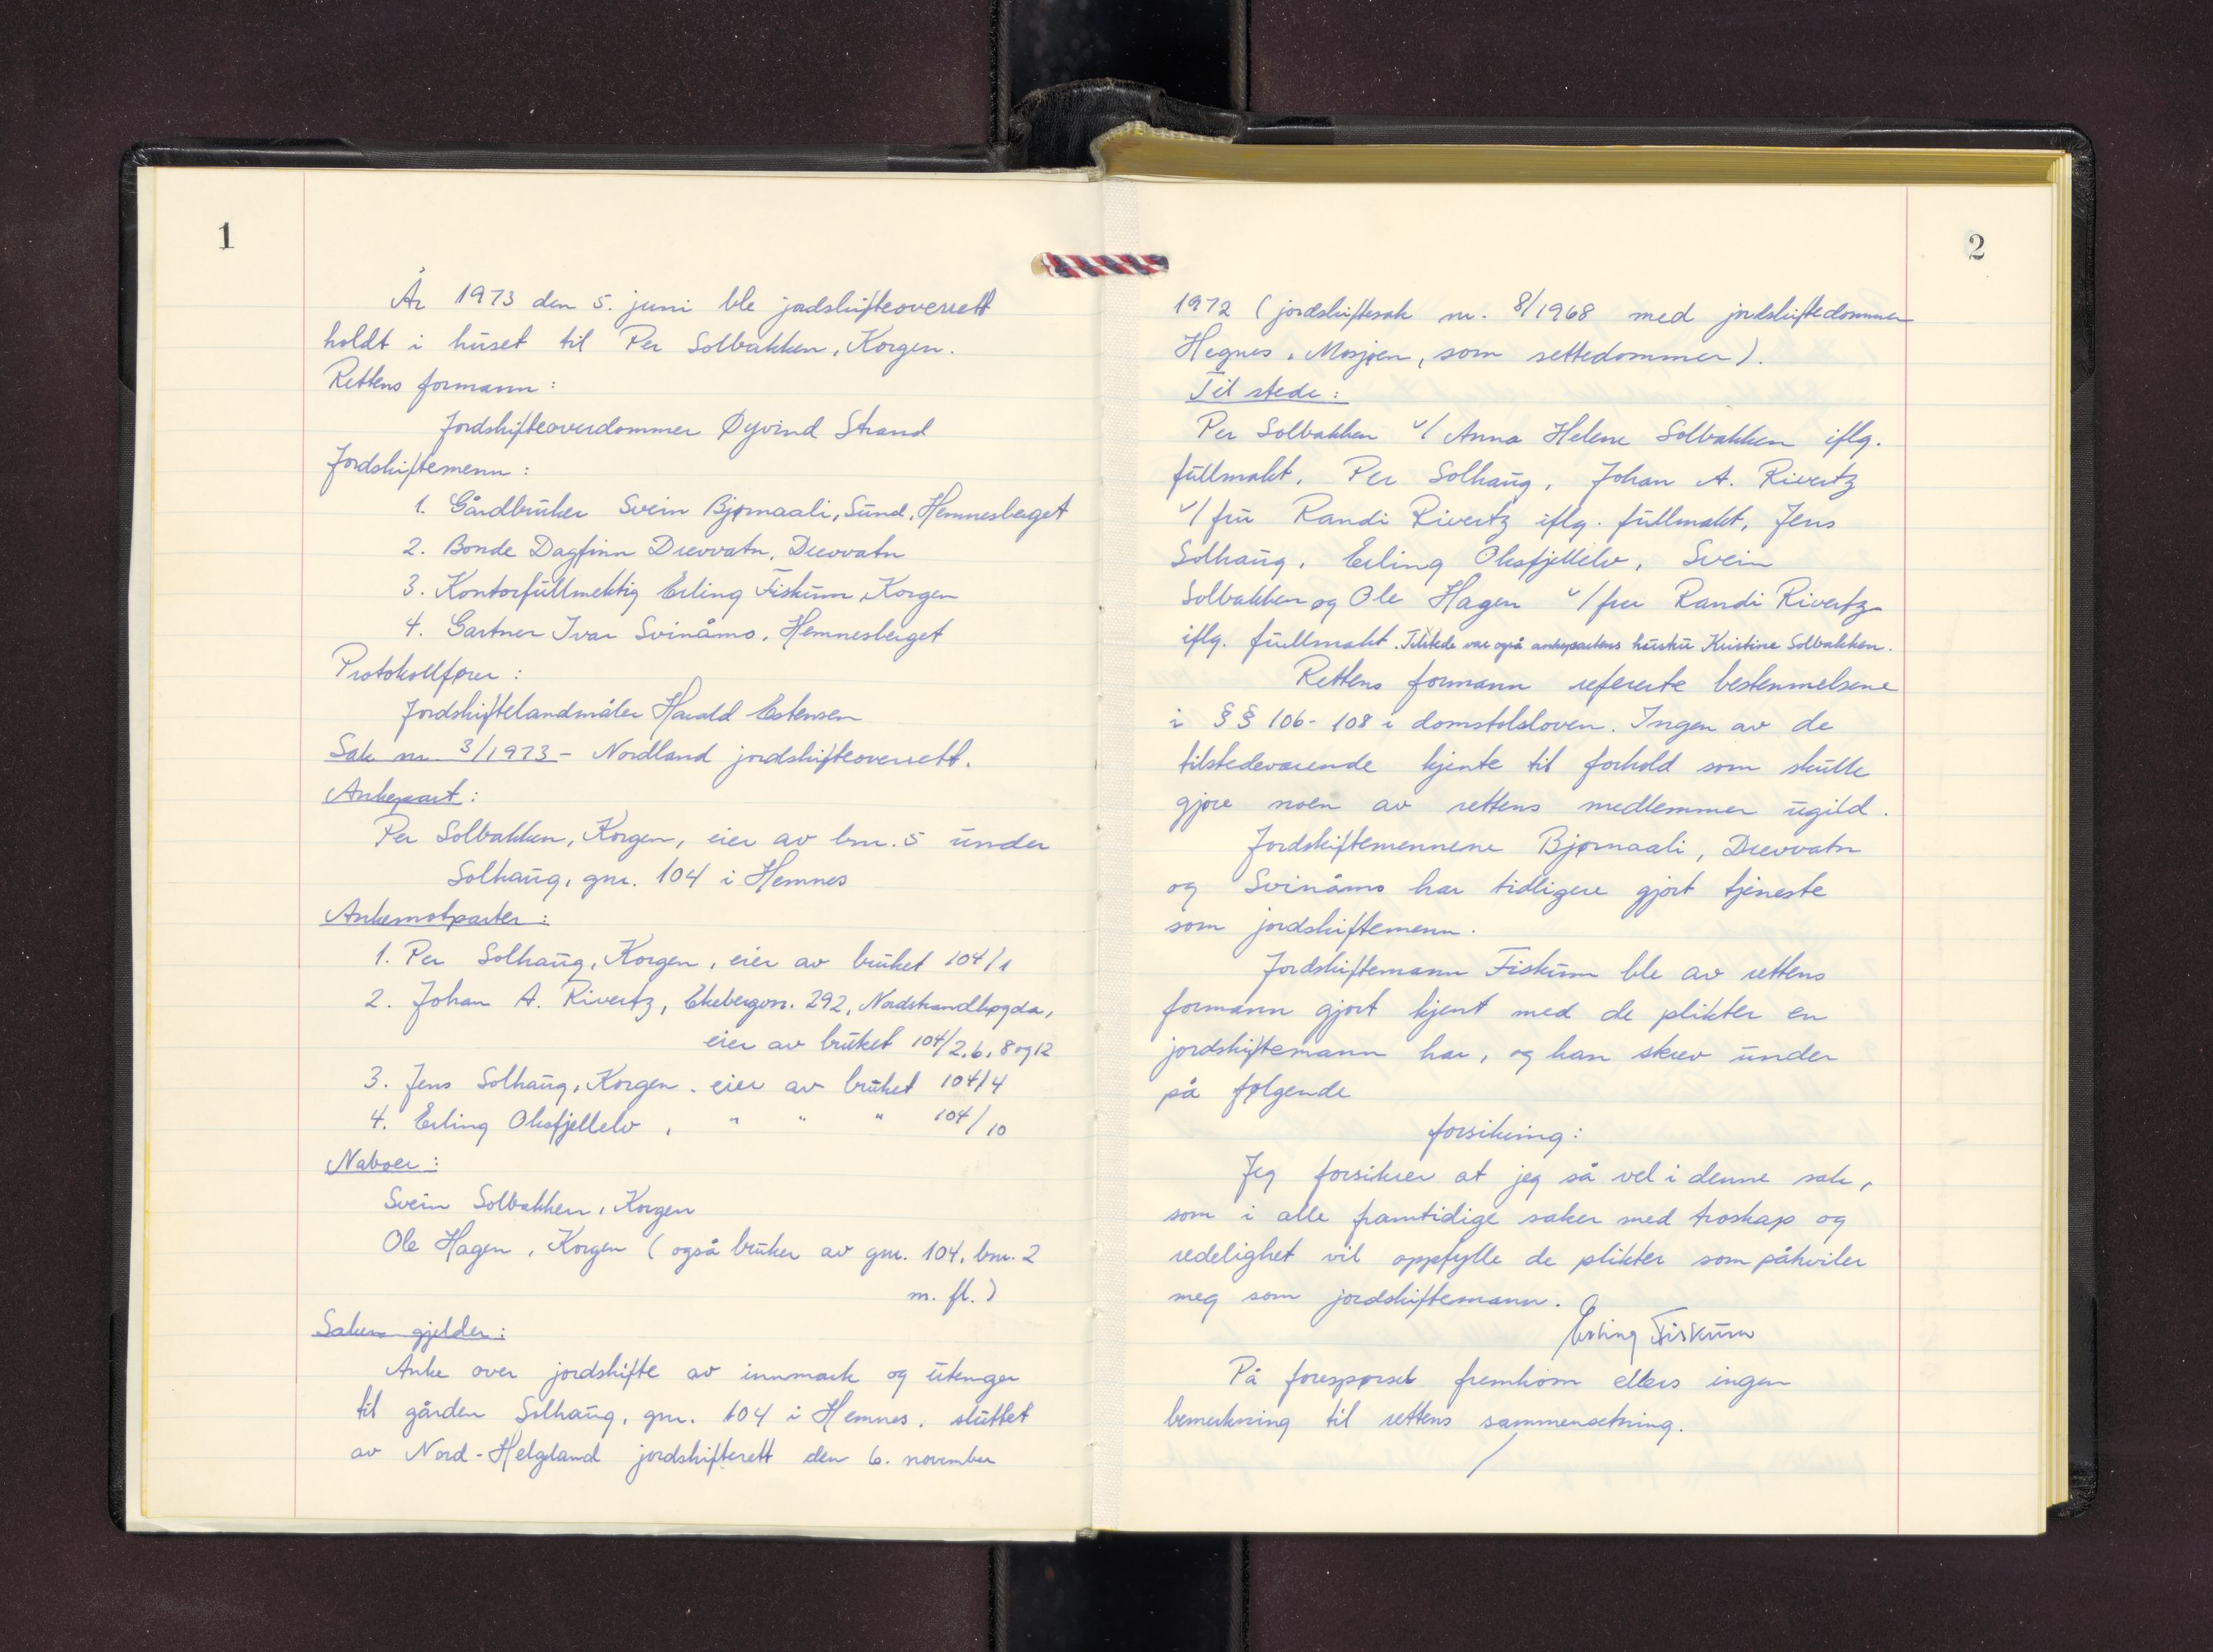 1
År 1973 den 5. juni ble jordskifteoverrett
holdt i huset til Per Solbakken, Korgen.
Rettens formann:
Jordskifteoverdommer Øyvind Strand
Jordskiftemenn:
1. Gårdbruker Svein Bjørnaali, Sund, Hemnesberget
2. Bonde Dagfinn Drevvatn, Drevvatn
3. Kontorfullmektig Erling Fiskum, Korgen
4. Gartner Ivar Svinåmo, Hemnesberget
Protokollfører:
Jordskiftelandmåler Harald Estensen
Sak nr. 3/1973 - Nordland jordskifteoverrett.
Ankepart:
Per Solbakken, Korgen, eier av bnr. 5 under
Solhaug, gnr. 104 i Hemnes
Ankemotparter:
1. Per Solhaug, Korgen, eier av bruket 104/1
2. Johan A. Rivertz, Ekebergvn. 292, Nordstrandhøgda,
eier av bruket 104/2, 6, 8 og 12
3. Jens Solhaug, Korgen, eier av bruket 104/4
4. Erling Oksfjellelv, " " " 104/10
Naboer:
Svein Solbakken, Korgen
Ole Hagen, Korgen (også bruker av gnr. 104, bnr. 2
m. fl.)
Saken gjelder:
Anke over jordskifte av innmark og utenger
til gården Solhaug, gnr. 104 i Hemnes, sluttet
av Nord-Helgland jordskifterett den 6. november
2
1972 (jordskiftesak nr. 8/1968 med jordskiftedommer
Hegnes, Mosjøen, som settedommer).
Til stede:
Per Solbakken v/ Anna Helene Solbakken iflg.
fullmakt, Per Solhaug, Johan A. Rivertz
v/ fru Randi Rivertz iflg. fullmakt, Jens
Solhaug, Erling Oksfjellelv, Svein
Solbakken og Ole Hagen v/ fru Randi Rivertz
iflg. fullmakt. Tilstede var også ankepartens hustru Kristine Solbakken.
Rettens formann refererte bestemmelsene
i §§ 106-108 i domstolsloven. Ingen av de
tilstedeværende kjente til forhold som skulle
gjøre noen av rettens medlemmer ugild.
Jordskiftemennene Bjørnaali, Drevvatn
og Svinåmo har tidligere gjort tjeneste
som jordskiftemenn.
Jordskiftemann Fiskum ble av rettens
formann gjort kjent med de plikter en
jordskiftemann har, og han skrev under
på følgende
forsikring:
Jeg forsikrer at jeg så vel i denne sak,
som i alle framtidige saker med troskap og
redelighet vil oppfylle de plikter som påhviler
meg som jordskiftemann.
Erling Fiskum
På forespørsel fremkom ellers ingen
bemerkning til rettens sammensetning.